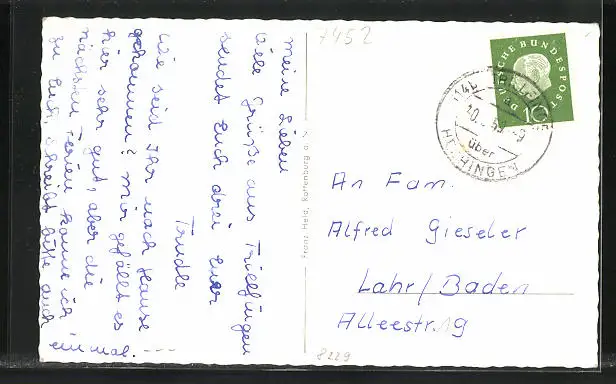 meine Lieben
Viele Grüße aus Trillfingen
sendet Euch drei Eure
Trudle
Wie seid Ihr nach Hause
gekommen? Mir gefällt es
hier sehr gut, aber die
nächsten Ferien komme ich
zu Euch, schreibt bitte auch
einmal. ---
Franz Held, Rottenburg a. N.
7452
DEUTSCHE BUNDESPOST
10
über
HECHINGEN
An Fam.
Alfred Gieseler
Lahr/Baden
Alleestr. 19
8229